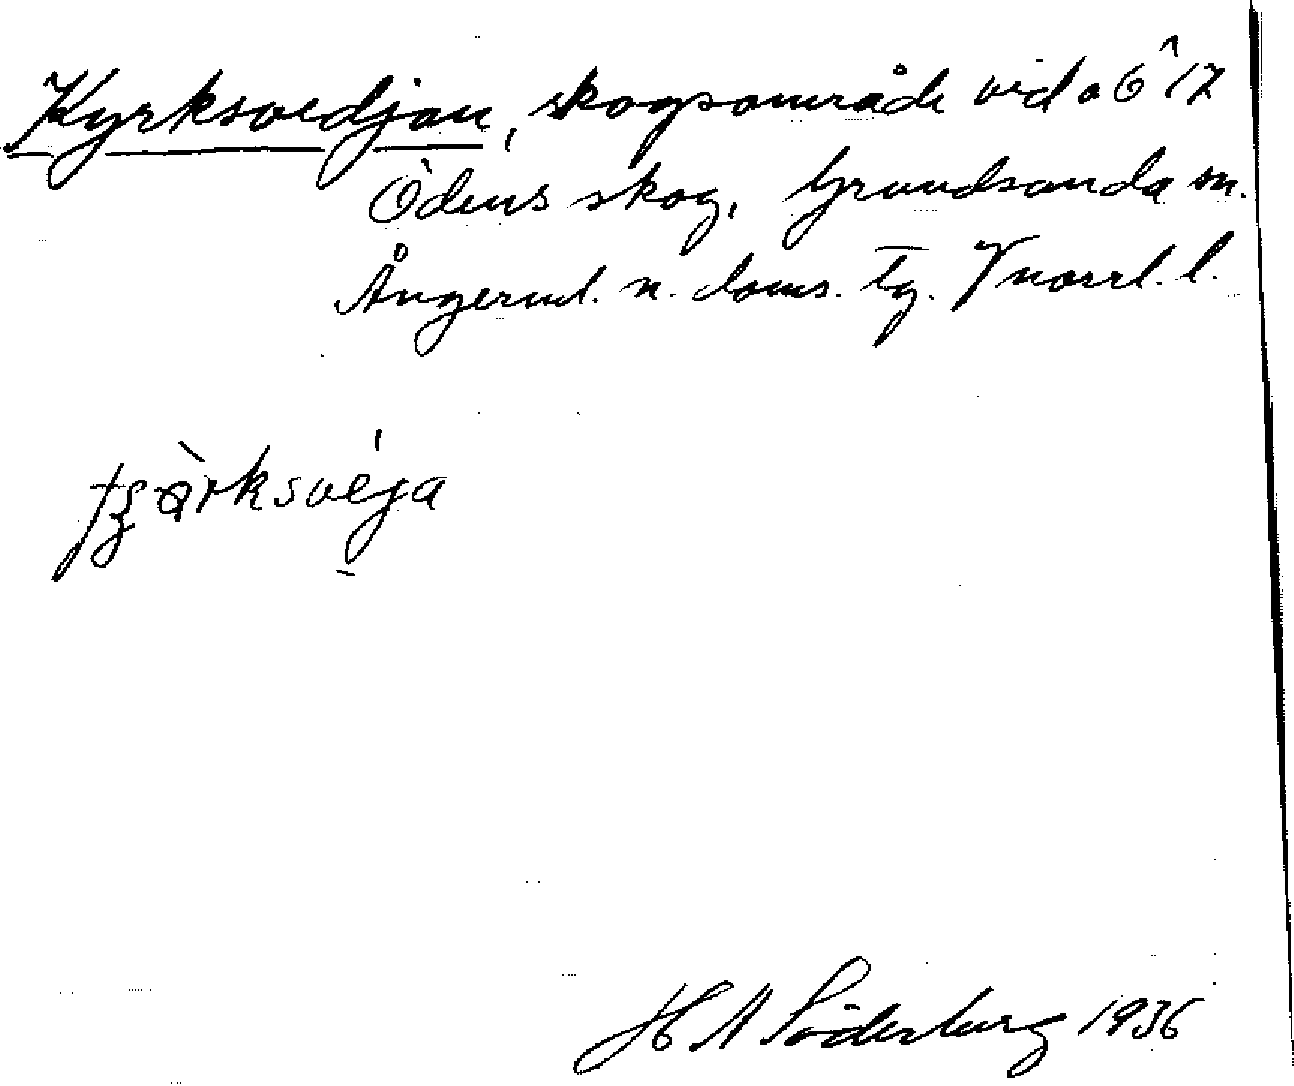 Kyrksvedjan, skogsområde vid a 6^17
Ödens skog, Grundsunda sn.
Ångerml. n. doms. tg. Vnorrl. l.
H A Söderberg 1936